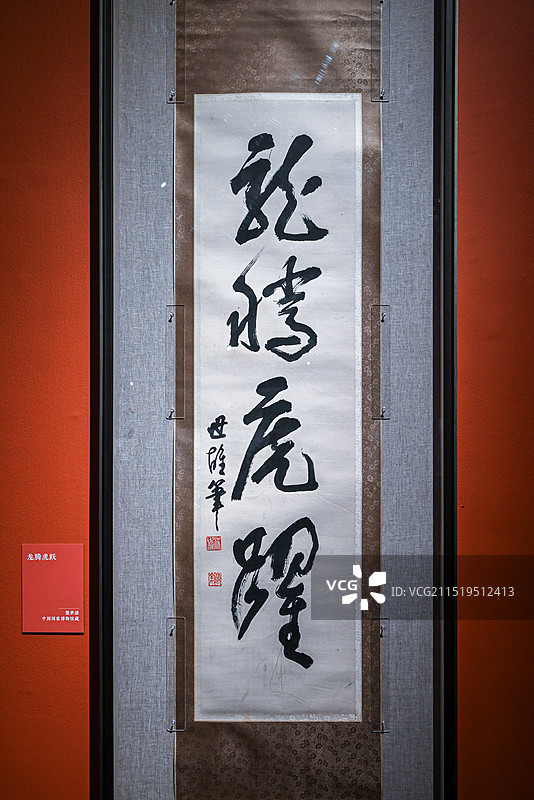 龍騰虎躍
世雄筆
龙腾虎跃
梁世雄
中国国家博物馆藏
VCG
ID: VCG211519512413